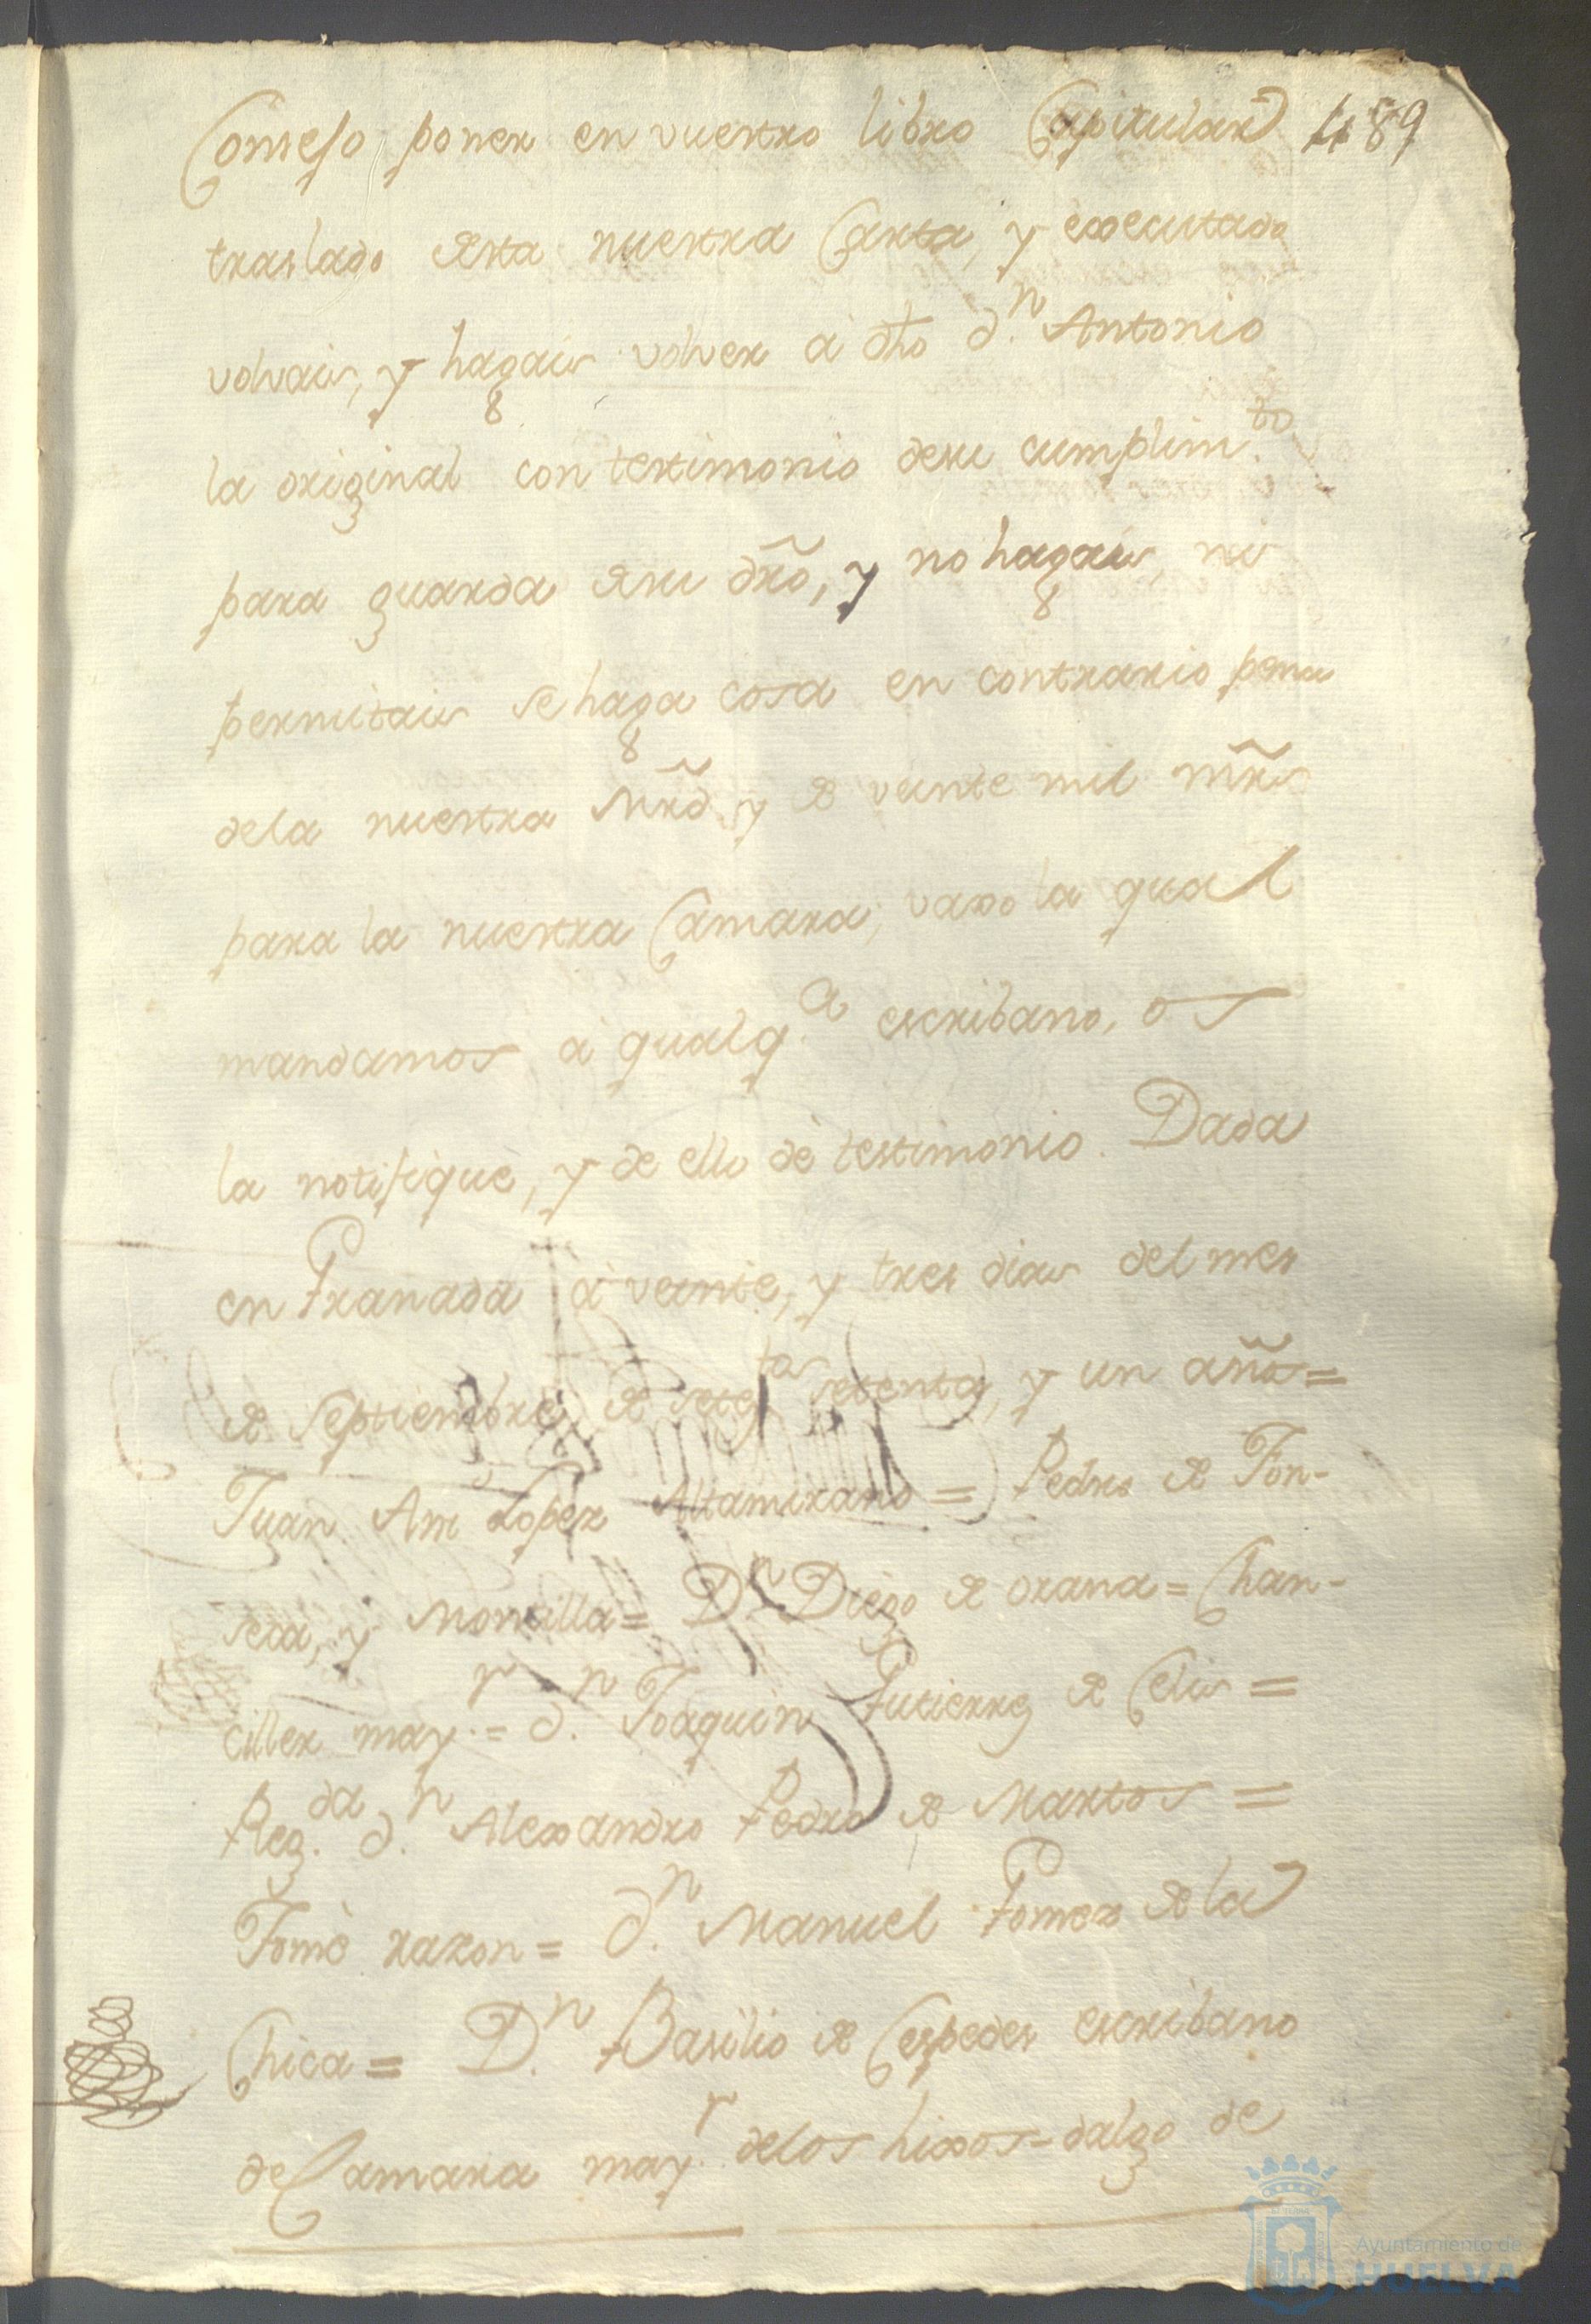 Consejo poner en vuestro libro Capitular 489
traslado desta nuestra Carta, y executado
volvais, y hagais volver à dho d.n Antonio
la original con testimonio desu cumplim.to
para guarda desu dro, y no hagais, ni
permitais se haga cosa en contrario pena
dela nuestra Mrd y de veinte mil mrs
para la nuestra Camara, vaxo la qual
mandamos à qualq.a escribano, os
la notifique, y de ello dè testimonio. Dada
en Granada à veinte, y tres dias del mes
de Septiembre, de setez.tos setenta, y un años=
Juan Ant.o Lopez Altamirano = Pedro de Fon-
seca, y Montilla= D.n Diego de Orana= Chan-
ciller may.r = d.n Joaquin Gutierrez de Celis =
Reg.da d.n Alexandro Pedro de Martos =
Tomè razon= d.n Manuel Gomez de la
Chica= D.n Basilio de Cespedes escribano
de Camara may.r delos hixos-dalgo de
Ayuntamiento de
HUELVA